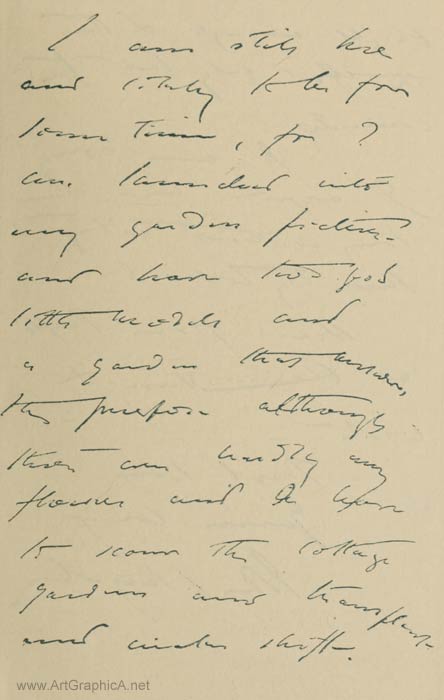 I am still here
and likely to be for
some time, for I
am launched into
my garden picture
and have two good
little models and
a garden that answers
the purpose although
there are hardly any
flowers and I have
to scour the cottage
gardens and transplant
and make shift.
www.ArtGraphicA.net